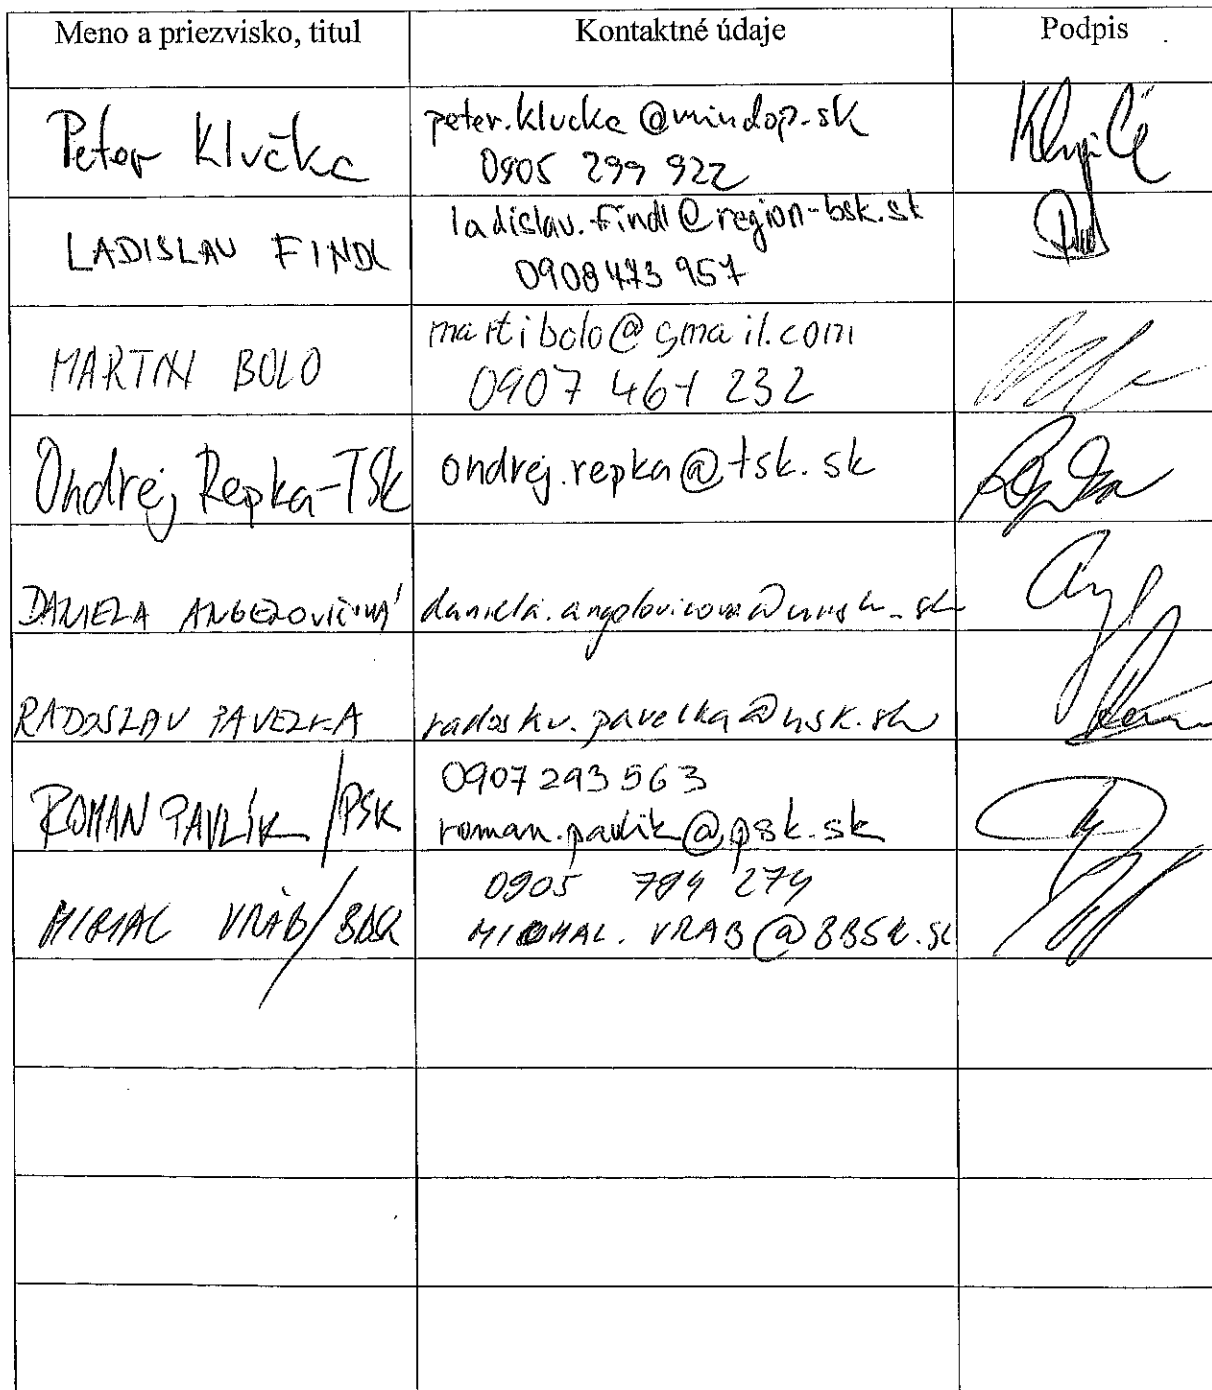 Meno a priezvisko, titul Kontaktné údaje Podpis
Peter Klučka peter.klucka@mindop.sk
0905 299 922
LADISLAV FINDL ladislav.findl@region-bsk.sk
0908 473 957
MARTIN BOLO martibolo@gmail.com
0907 461 232
Ondrej Repka-TSK ondrej.repka@tsk.sk
DANIELA ANGELOVIČOVÁ
RADOSLAV PAVELKA
ROMAN PAVLÍK/PSK 0907 293 563
roman.pavlik@psk.sk
MICHAL VRÁB/BBSK 0905 794 274
MICHAL.VRAB@BBSK.SK